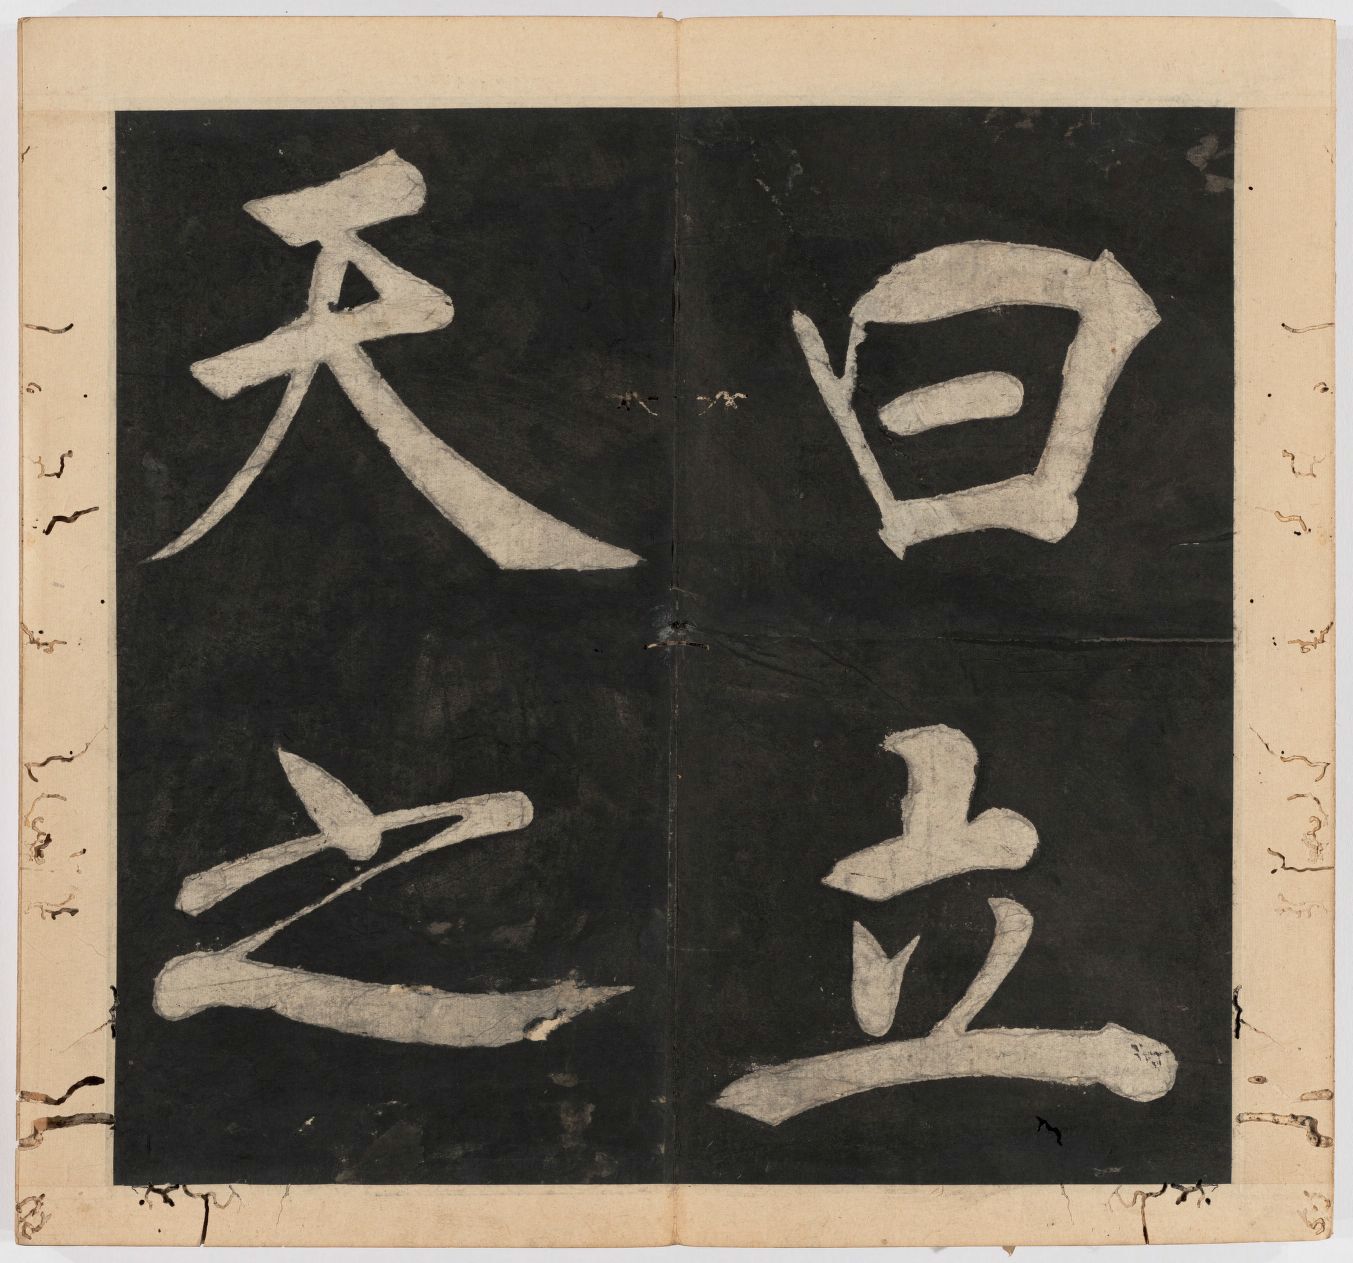 曰立
天之